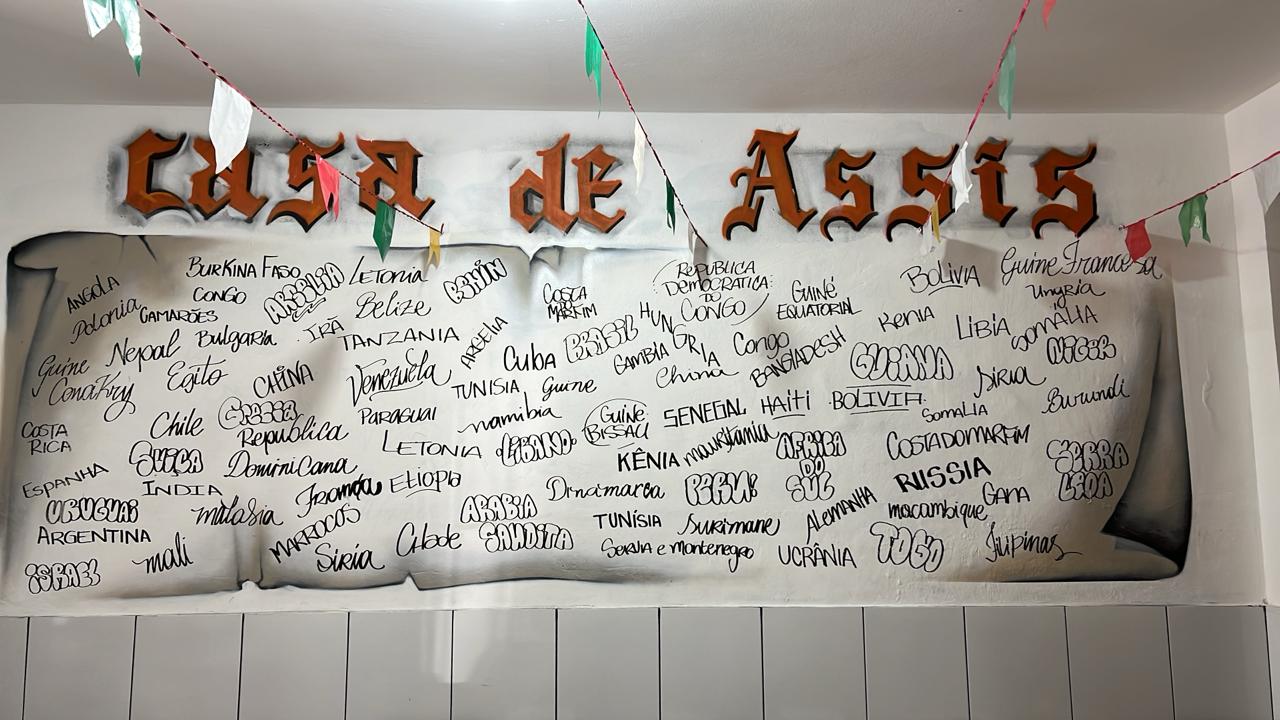 casa de Assis
ANGOLA
BURKINA FASO
LETONIA
BENIN
REPUBLICA
DEMOCRATICA
DO
CONGO
GUINÉ
EQUATORIAL
BOLIVIA
Guine Francesa
Polonia
CAMARÕES
CONGO
Belize
COSTA
DO
MARFIM
Ungria
Guine
Conakry
Nepal
Bulgaria
IRÃ
TANZANIA
ARGELIA
Cuba
BRASIL
HUNGRIA
GAMBIA
Congo
BANGLADESH
Kenia
LIBIA
SOMALIA
NIGER
Egito
CHINA
Venezuela
TUNISIA
Guine
China
GUIANA
Siria
Burundi
COSTA
RICA
Chile
Grecia
PARAGUAI
namibia
GUINE
BISSAU
SENEGAL
HAITI
BOLIVIA
SOMALIA
Republica
Dominicana
LETONIA
LIBANO
KÊNIA
mauritania
AFRICA
DO
SUL
COSTA DO MARFIM
ESPANHA
SUIÇA
INDIA
França
Etiopia
Dinamarca
PERU
RUSSIA
SERRA
LEOA
URUGUAI
malasia
MARROCOS
ARABIA
SAUDITA
TUNÍSIA
Suriname
ALEMANHA
mocambique
GANA
ARGENTINA
mali
Siria
SERVIA e montenegro
UCRÂNIA
TOGO
filipinas
ISRAEL